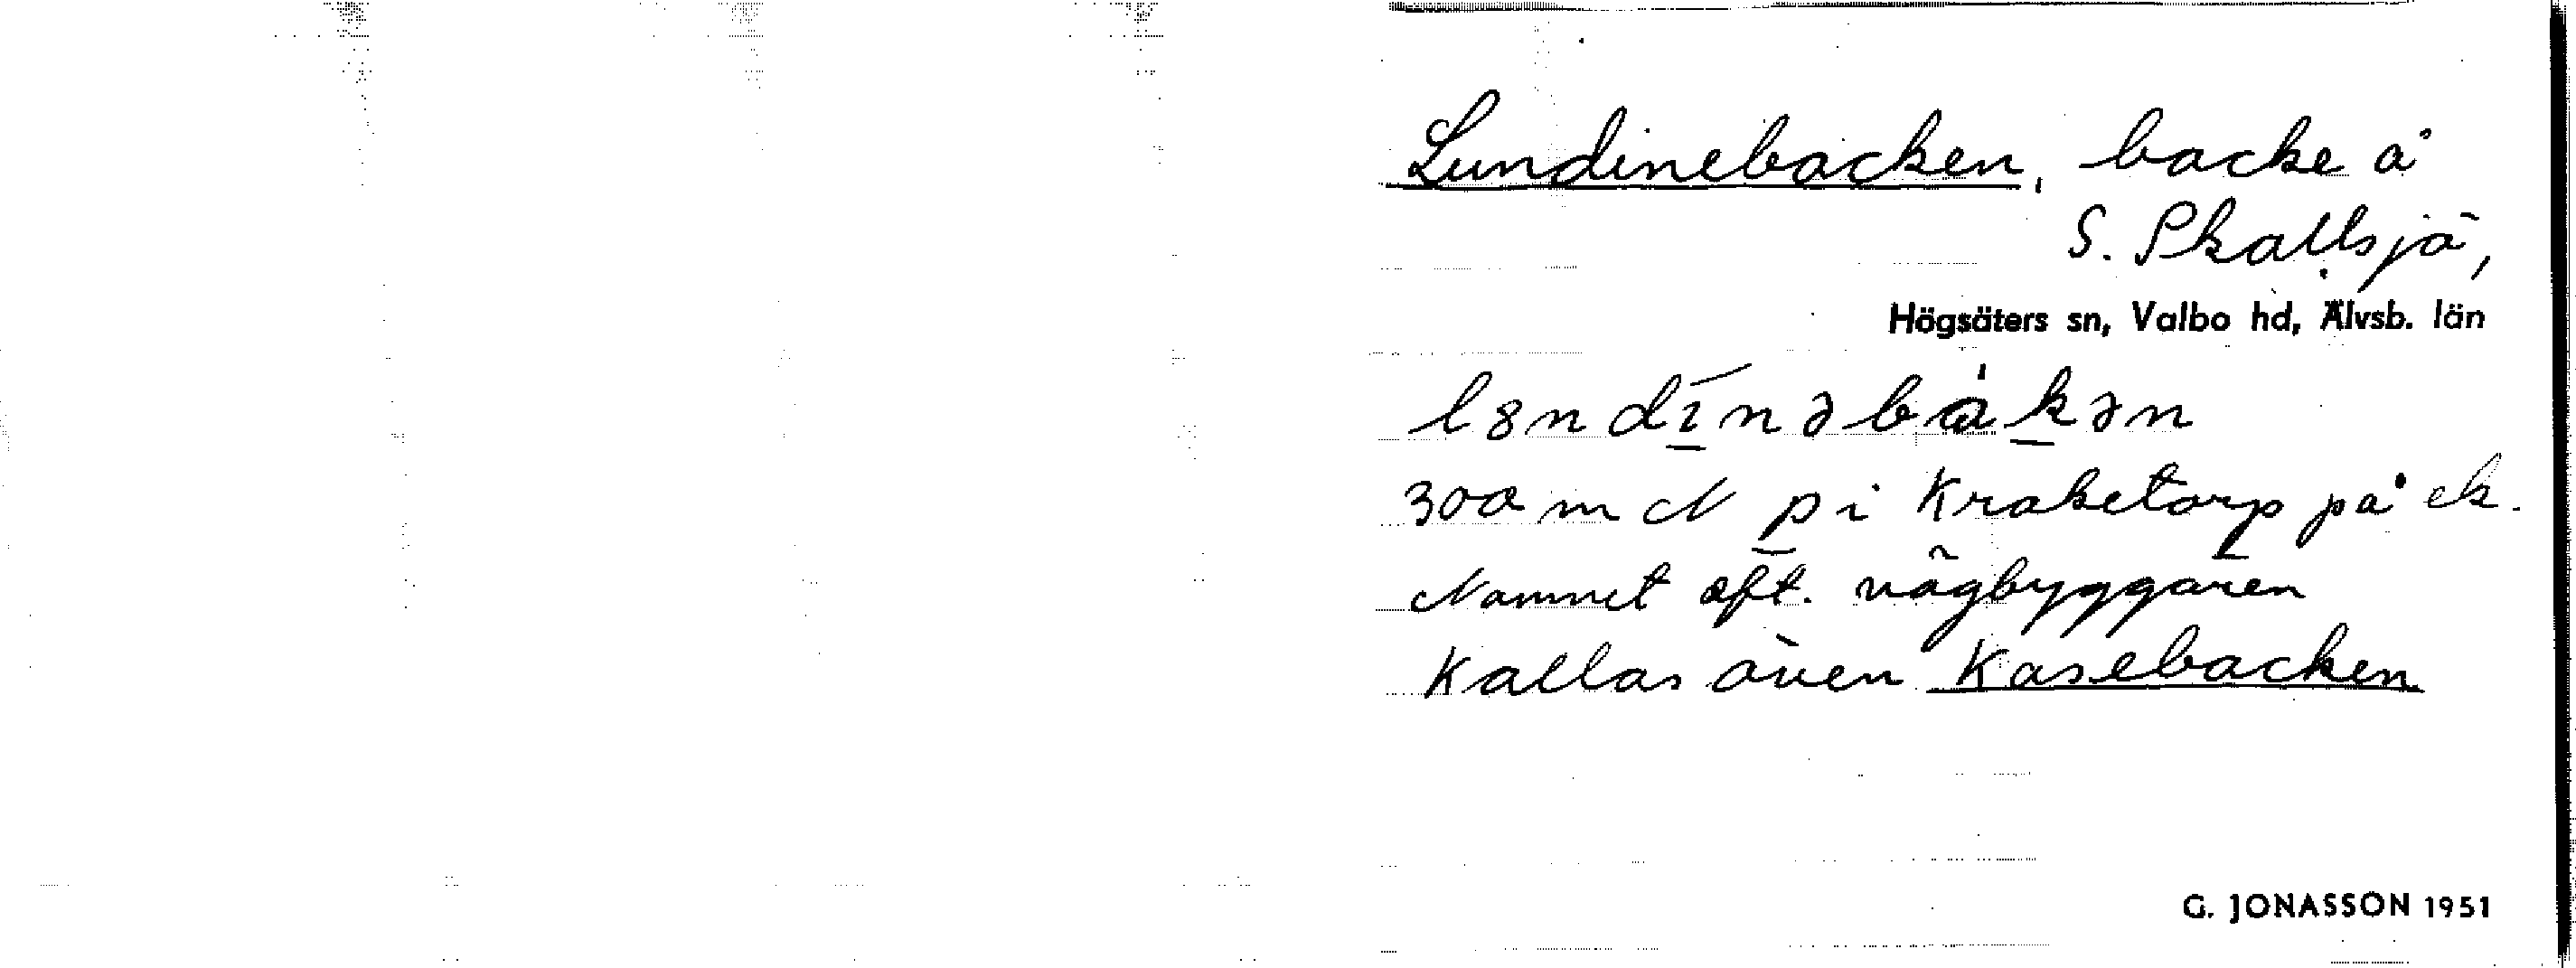 Lundinebacken, backe å
S. Skallsjö,
Högsäters sn, Valbo hd, Älvsb. län
lɞndı́nəbàkən
300 m N p i Kraketorp på ek.
Namnet eft. vägbyggaren
Kallas även Kasebacken
G. JONASSON 1951